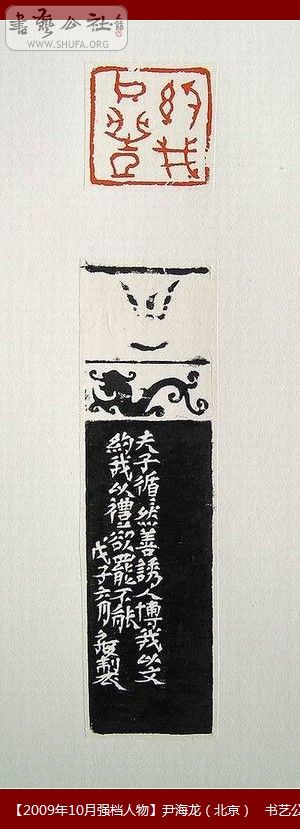 書藝公社
www.SHUFA.ORG
約我
夫子循〻然善誘人博我以文
約我以禮欲罷不能
戊子六月製
【2009年10月强档人物】尹海龙（北京） 书艺公